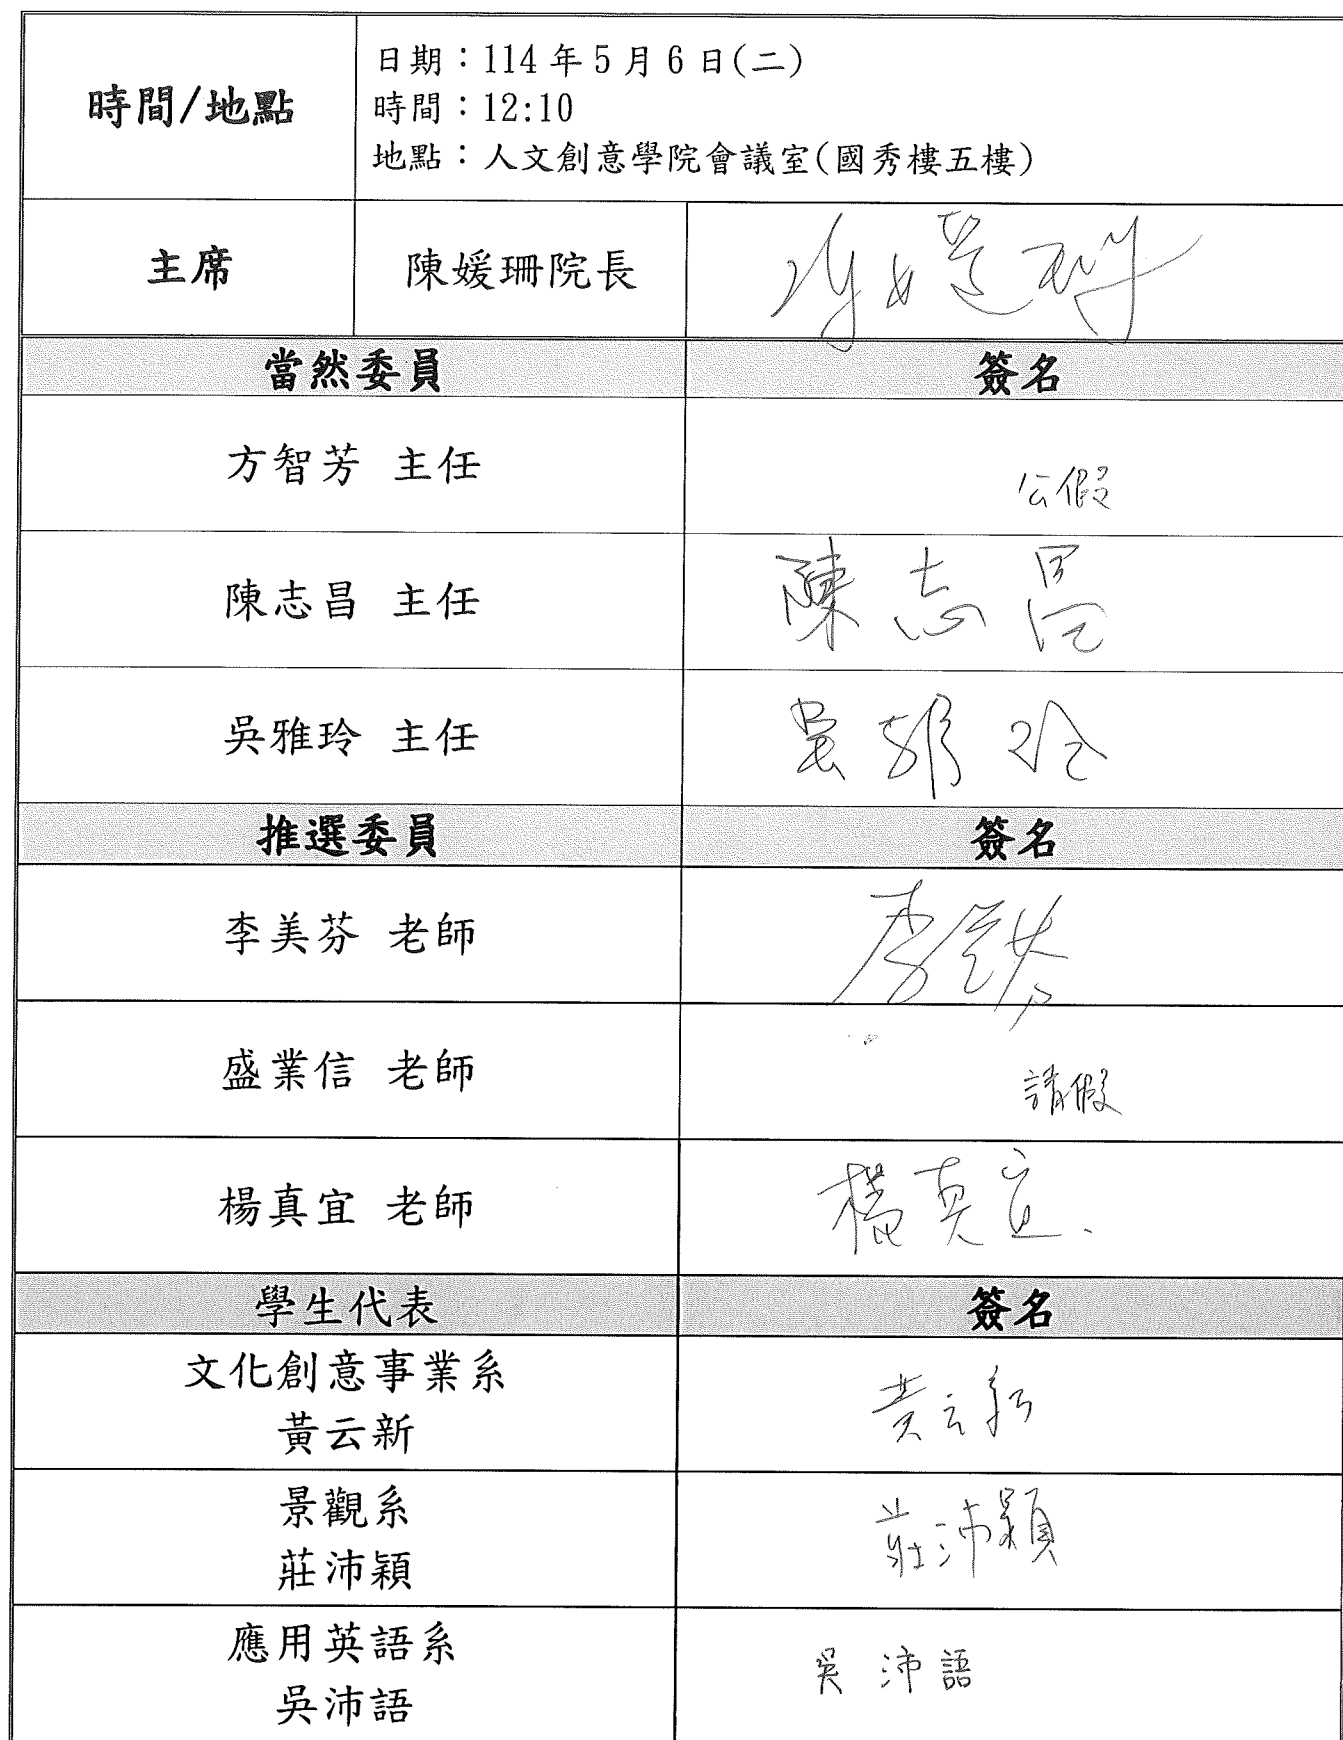 時間/地點
日期：114年5月6日(二)
時間：12:10
地點：人文創意學院會議室(國秀樓五樓)
主席 陳媛珊院長 陳媛珊
當然委員 簽名
方智芳 主任 公假
陳志昌 主任 陳志昌
吳雅玲 主任 吳雅玲
推選委員 簽名
李美芬 老師 李美芬
盛業信 老師 請假
楊真宜 老師 楊真宜.
學生代表 簽名
文化創意事業系
黃云新 黃云新
景觀系
莊沛穎 莊沛穎
應用英語系
吳沛語 吳沛語